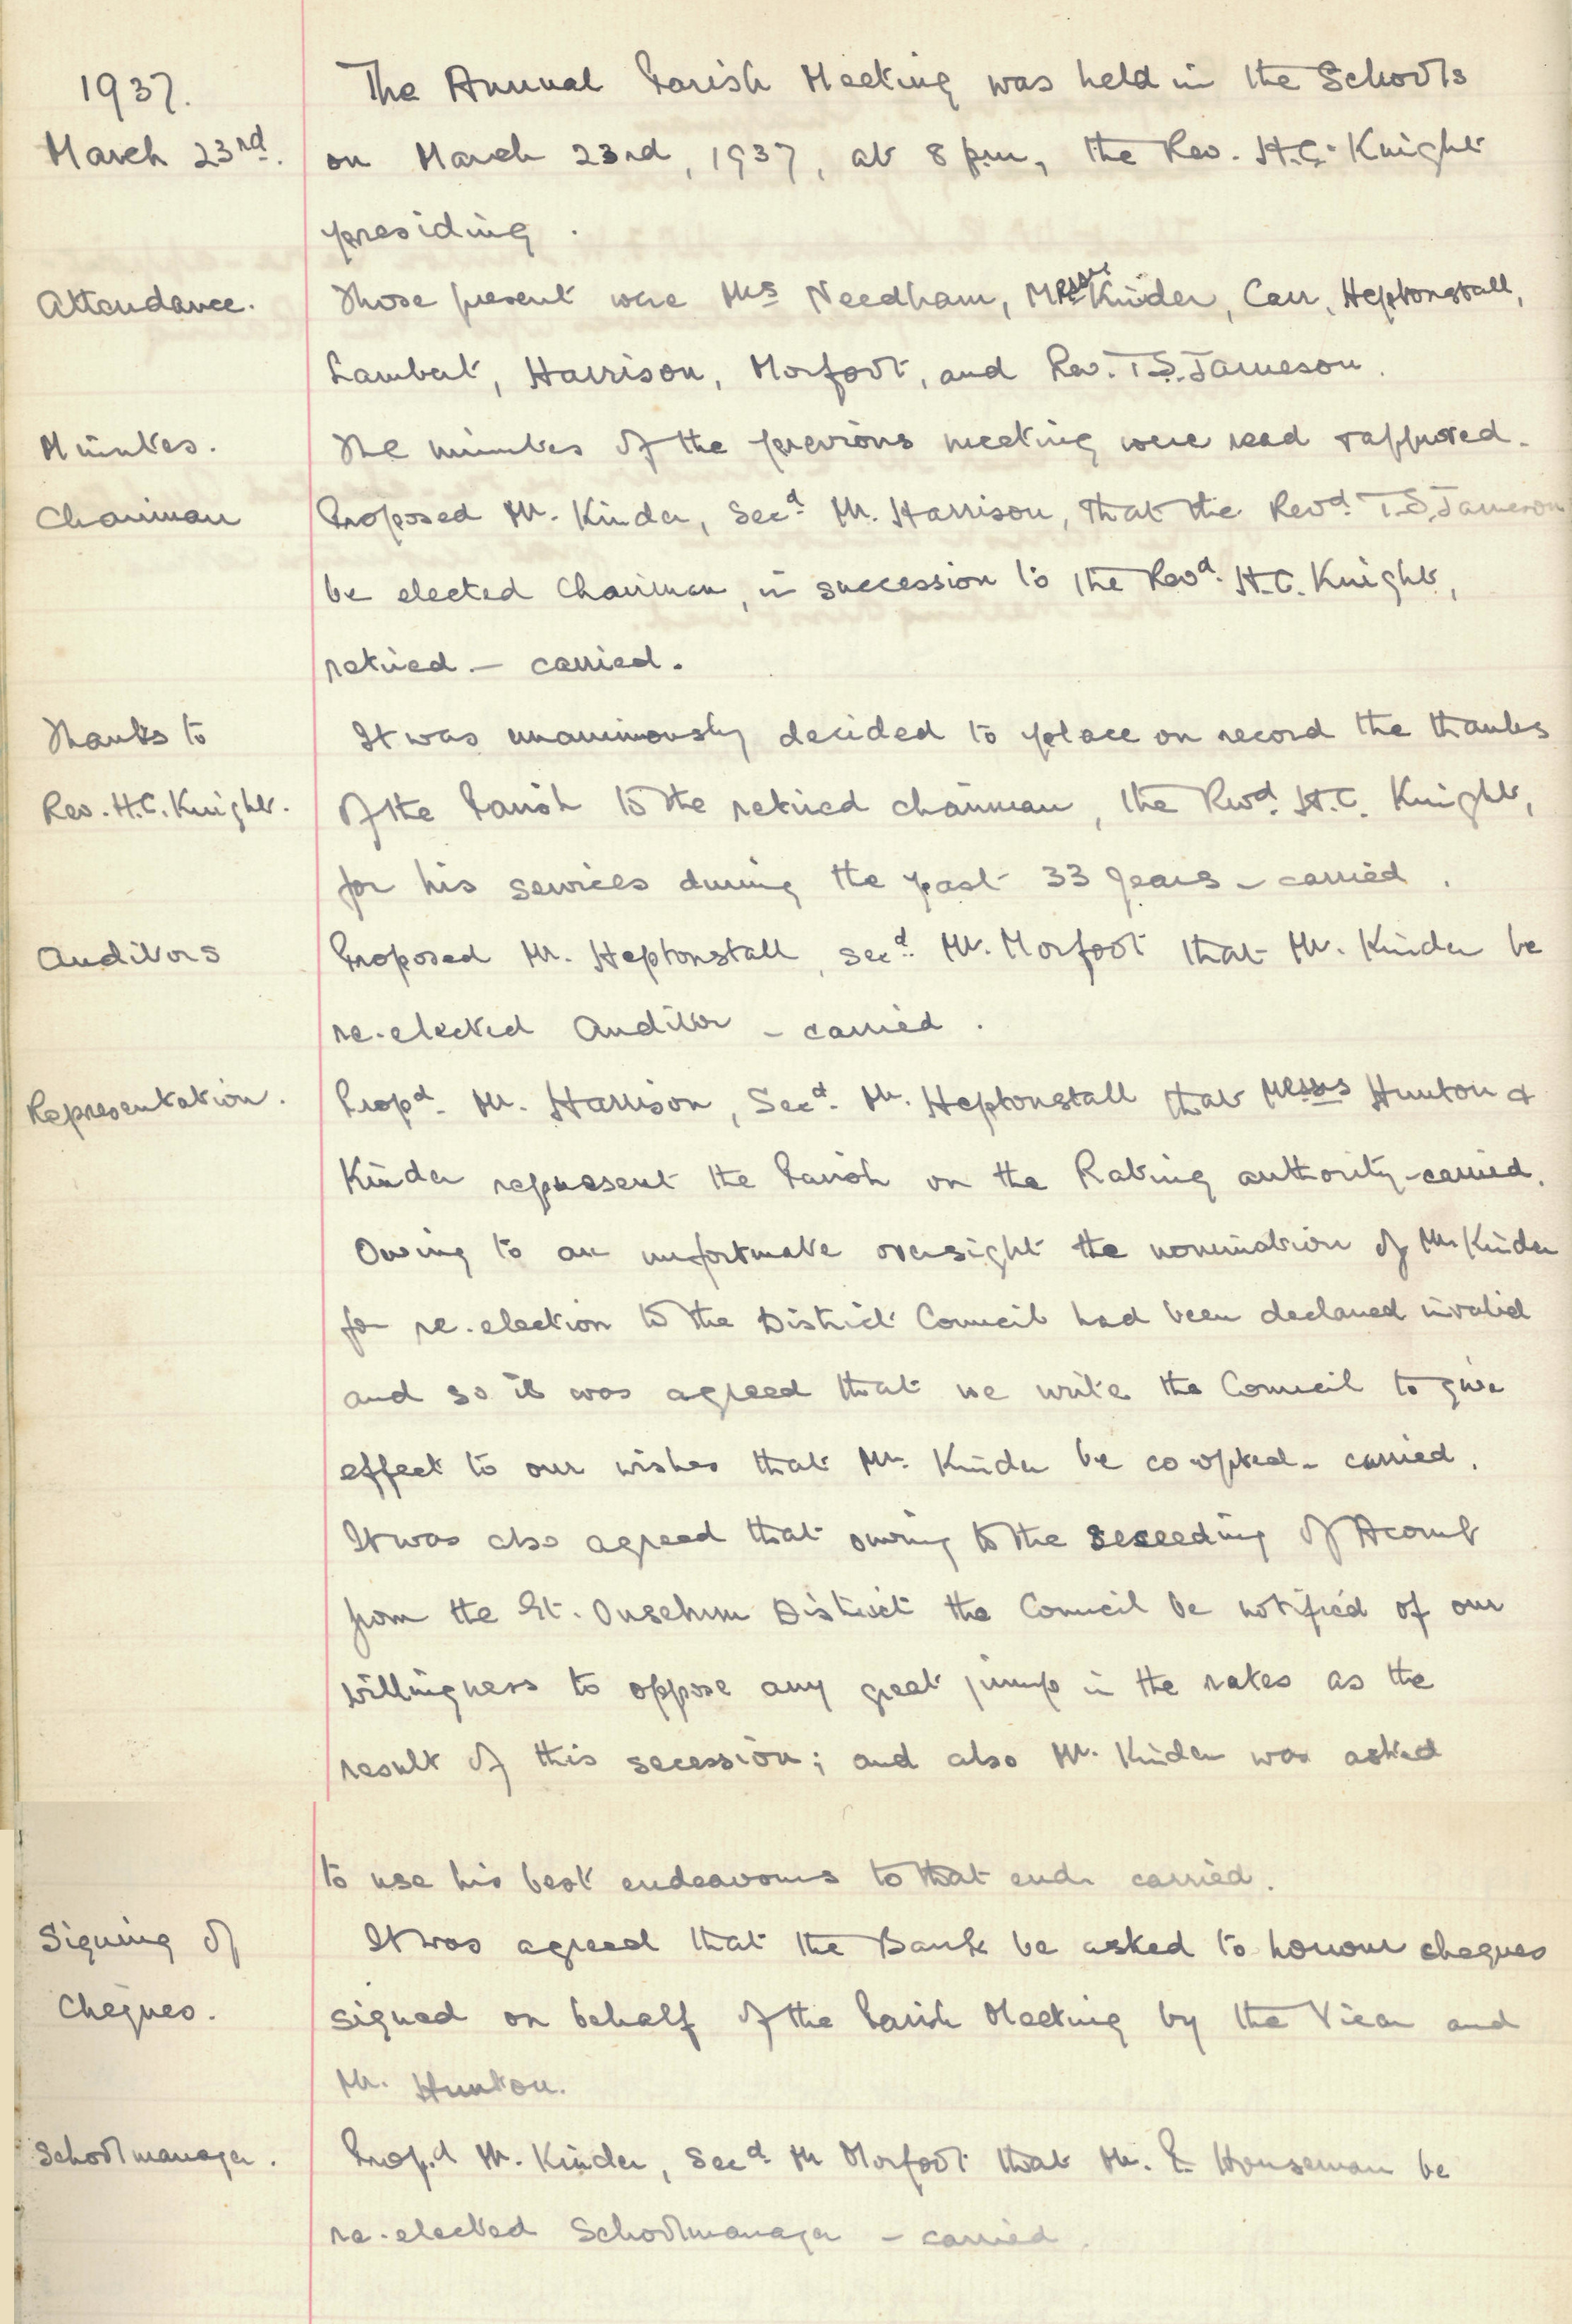 1937. The Annual Parish Meeting was held in the Schools
March 23rd. on March 23rd, 1937, at 8 p.m, the Rev. H.C. Knight
presiding.
Attendance. Those present were Mrs Needham, Messrs Kinder, Carr, Heptonstall,
Lambert, Harrison, Morfoot, and Rev. T.S. Jameson.
Minutes. The minutes of the previous meeting were read & approved.
Chairman Proposed Mr. Kinder, Secd. Mr. Harrison, that the Revd. T.S. Jameson
be elected Chairman, in succession to the Revd. H.C. Knight,
retired - carried.
Thanks to It was unanimously decided to place on record the thanks
Rev. H.C. Knight. of the Parish to the retired chairman, the Revd. H.C. Knight,
for his services during the past 33 years - carried.
Auditors Proposed Mr. Heptonstall, secd. Mr. Morfoot that Mr. Kinder be
re-elected Auditor - carried.
Representation. Propd. Mr. Harrison, Secd. Mr. Heptonstall that Messrs Hunton &
Kinder represent the Parish on the Rating authority - carried.
Owing to an unfortunate oversight the nomination of Mr. Kinder
for re-election to the District Council had been declared invalid
and so it was agreed that we write the Council to give
effect to our wishes that Mr. Kinder be co-opted - carried.
It was also agreed that owing to the seceeding of Acomb
from the Gt. Ouseburn District the Council be notified of our
willingness to oppose any great jump in the rates as the
result of this secession; and also Mr. Kinder was asked
to use his best endeavours to that end - carried.
Signing of It was agreed that the Bank be asked to honour cheques
Cheques. signed on behalf of the Parish Meeting by the Vicar and
Mr. Hunton.
Schoolmanager. Prop.d Mr. Kinder, Secd. Mr Morfoot that Mr. E. Houseman be
re-elected Schoolmanager - carried.